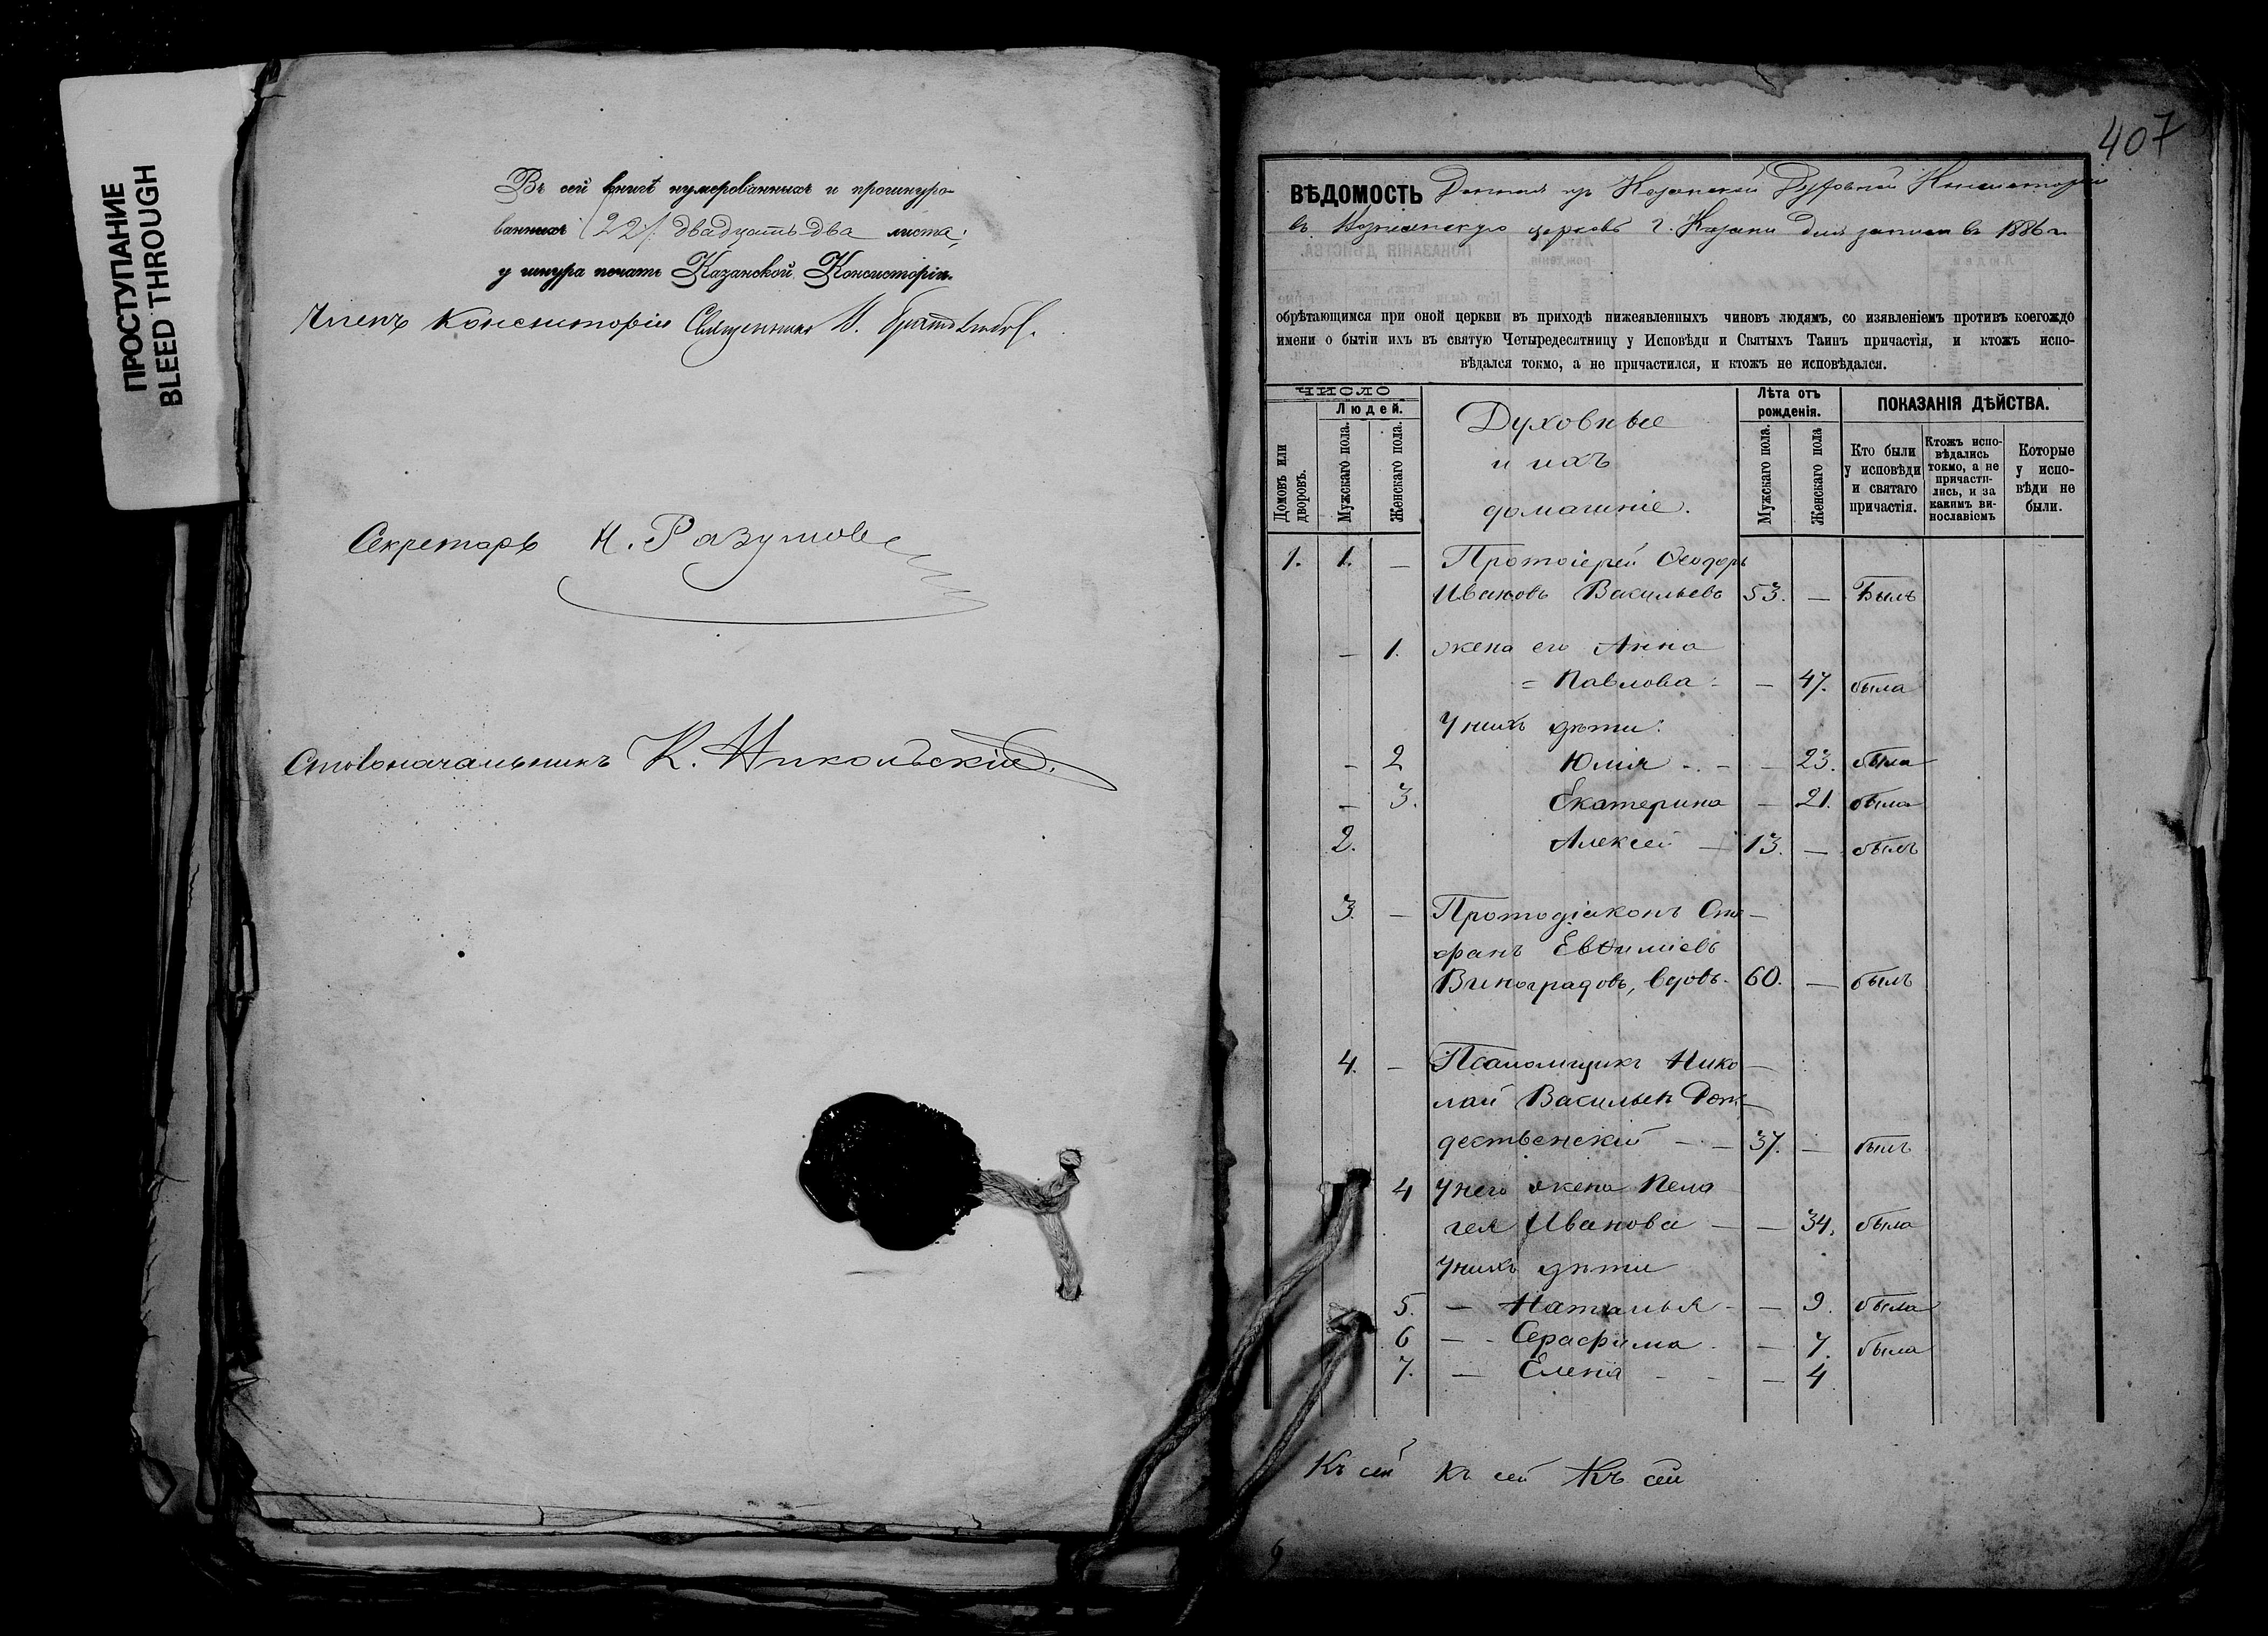 ПРОСТУПАНИЕ
BLEED THROUGH
Въ сей книгѣ нумерованныхъ и прошнуро-
ванныхъ (22) двадцать два листа;
у шнура печать Казанской Консисторіи.
Членъ Консисторіи Священникъ
Секретарь Н. Разумовъ
Столоначальникъ К. Никольскій.
407
ВѢДОМОСТЬ Данная изъ Казанской Духовной Консисторіи
въ церковь г. Казани для записи въ 1886 г.
обрѣтающимся при оной церкви въ приходѣ нижеявленныхъ чиновъ людямъ, со изявленіемъ противъ коегождо
имени о бытіи ихъ въ святую Четыредесятницу у Исповѣди и Святыхъ Таинъ причастія, и ктожъ испо-
вѣдался токмо, а не причастился, и ктожъ не исповѣдался.
ЧИСЛО
Людей.
Домовъ или дворовъ.
Мужскаго пола.
Женскаго пола.
Духовные
и ихъ
домашніе.
Лѣта отъ рожденія.
Мужскаго пола.
Женскаго пола
ПОКАЗАНІЯ ДѢЙСТВА.
Кто были у исповѣди и святаго причастія.
Ктожъ испо-вѣдались токмо, а не причасти-лись, и за какимъ ви-нословіемъ
Которые у испо-вѣди не были.
1. 1. — Протоіерей Ѳеодоръ
Ивановъ Васильевъ 53. — Былъ
— 1. жена его Анна
= Павлова - — 47. была
У нихъ дѣти:
— 2 Юлія - - — 23. была
— 3. Екатерина — 21. была
2. Алексей — 13. — былъ
3. — Протодіаконъ Сте-
фанъ Евѳиміевъ
Виноградовъ, вдовъ. 60. — былъ
4. — Псаломщикъ Нико-
лай Васильевъ Рож-
дественскій - - 37. — былъ
4 У него жена Пела
гея Иванова — — 34. была
У нихъ дѣти
5. — Наталья - — 9. была
6 — - Серафима - — 7. была
7. — Елена - - — 4
Къ сей Къ сей Къ сей